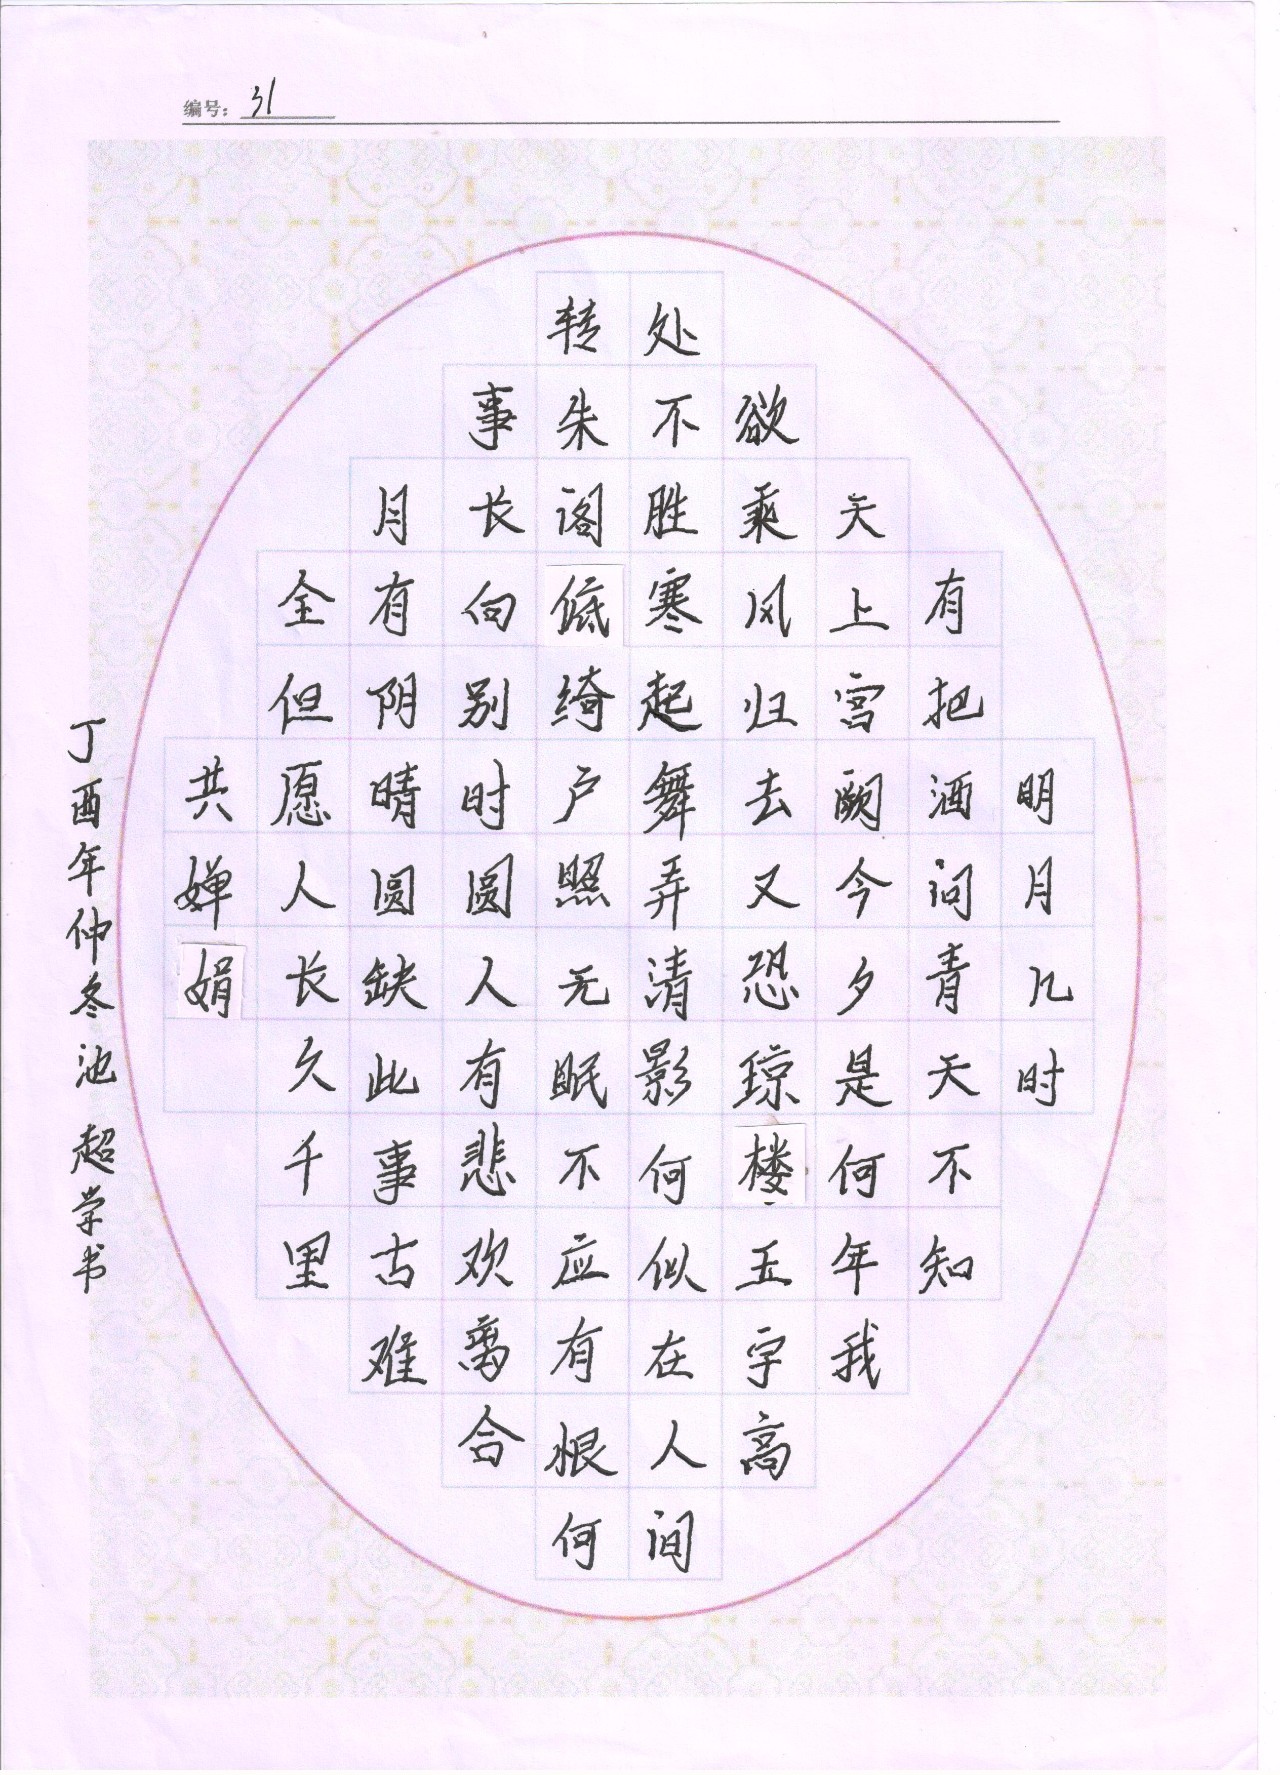 编号：31
明月几时
有把酒问青天不知
天上宫阙今夕是何年我
欲乘风归去又恐琼楼玉宇高
处不胜寒起舞弄清影何似在人间
转朱阁低绮户照无眠不应有恨何
事长向别时圆人有悲欢离合
月有阴晴圆缺此事古难
全但愿人长久千里
共婵娟
丁酉年仲冬池超学书